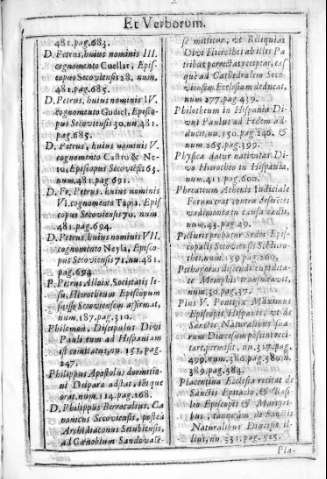 Et Verborum.
481. pag. 683.
D. Petrus, huius nominis III.
cognomento Cuellar, Epis-
copus Secoviensis 28. num.
481. pag. 685.
D. Petrus, huius nominis IV.
cognomento Episco-
pus Secoviensis 30. nu. 481.
pag. 685.
D. Petrus, huius nominis V.
cognomento Castro & Ne-
ro, Episcopus Secoviensis 63.
num. 481. pag. 691.
D. Fr. Petrus, huius nominis
VI. cognomento Tapia, Epis-
copus Secoviensis 70. num
481. pag. 694.
D. Petrus, huius nominis VII.
cognomento Neyla, Episco-
pus Secoviensis 71. nu. 481.
pag. 694
P. Petrus Alloix, Societatis Ie-
su, Hierotheum Episcopum
fuisse Secoviensem affirmat,
num. 187. pag. 310.
Philemon, Discipulus Divi
Pauli cum ad Hispaniam
est comitatus, nu. 151. pag.
247.
Philippus Apostolus dormitio-
ni Deiparæ adstat, ibique
orat, num. 114. pag. 168.
D. Philippus Berrocalius, Ca-
nonicus Secoviensis, postea
Architaconus
ad Cænobium
se mittitur, ut Reliquias
Divi Hierothei ab illis Pa-
tribus petat & acceptet, eas-
que ad Cathedralem Seco-
viensem Ecclesiam deducat,
num 277. pag 439.
Philotheum in Hispania Di-
vi Paulus ad Fidem ad-
ducit, nu. 150. pag 246. &
num 265. pag. 399.
Physica datur nativitas Di-
vo Hierotheo in Hispania,
num. 411. pag. 600.
Athenis Iudiciale
Forum erat contra desertores
in causa
num. 43. pag 40.
probatur Sedis Epis-
copalis Secoviensis S. Hiero-
thei, num. 159. pag 260.
Pythagoras discendi cupidita-
te Memphis
num. 30. pag. 37.
Pius V. Pontifex Maximus
Episcopis Hispaniæ, ut de
Sanctis Naturalibus sua-
rum Diœcesum possint reci-
tare, permisit, nu. 317. pag.
499. num. 380. pag. 380. &
389. pag. 584.
Placentina Ecclesia recitat de
Sanctis Epitacio, & Basi-
lio Episcopis & Martyri-
bus, tanquam de Sanctis
Naturalibus Diœcesis il-
lius, nu. 331. pag. 515.
Pla-